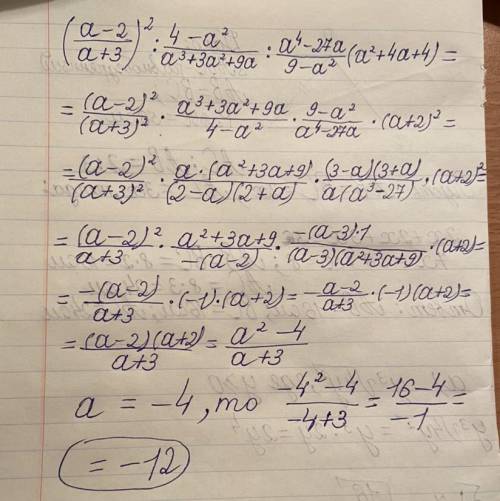 ((a-2)/(a+3))² : (4-a²)/(a³+3a²+9a) : (a⁴-27a)/(9-a²) (a²+4a+4) =
= (a-2)²/(a+3)² · (a³+3a²+9a)/(4-a²) · (9-a²)/(a⁴-27a) · (a+2)² =
= (a-2)²/(a+3)² · a·(a²+3a+9)/(2-a)(2+a) · (3-a)(3+a)/a(a³-27) · (a+2)² =
= (a-2)²/a+3 · a²+3a+9/-(a-2) · -(a-3)·1/(a-3)(a²+3a+9) · (a+2) =
= -(a-2)/a+3 · (-1)·(a+2) = -a-2/a+3 · (-1)(a+2) =
= (a-2)(a+2)/a+3 = a²-4/a+3
a = -4, то -4²-4/-4+3 = 16-4/-1 =
= -12